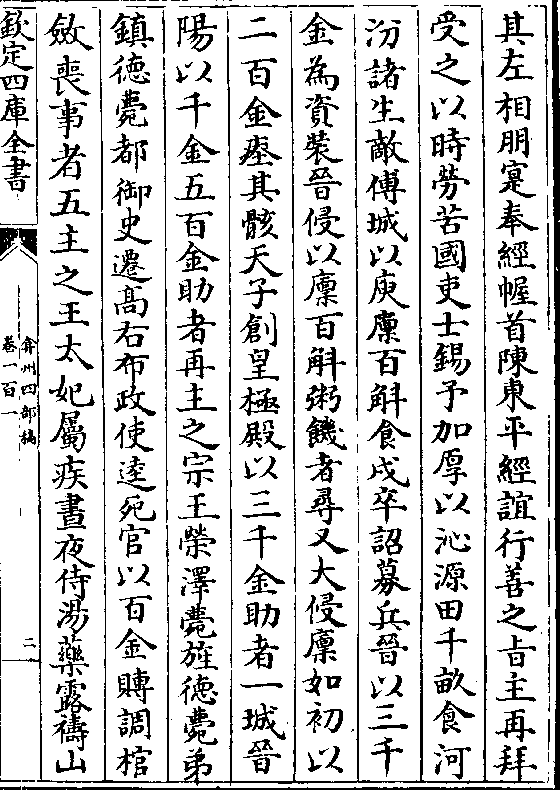 其左相朋寔奉經幄首陳東平經誼行善之旨主再拜
受之以時勞苦國吏士錫予加厚以沁源田千畝食河
汾諸生敵傅城以庾廪百斛食戍卒詔募兵晉以三千
金為資裝晉侵以廪百斛粥饑者尋又大侵廪如初以
二百金瘞其骸天子創皇極殿以三千金助者一城晉
陽以千金五百金助者再主之宗王榮澤薨旌徳薨弟
鎮徳薨都御史遷髙右布政使逵死官以百金賻調棺
斂喪事者五主之王太妃屬疾晝夜侍湯藥露禱山
欽定四庫全書
弇州四部稿
卷一百一
二